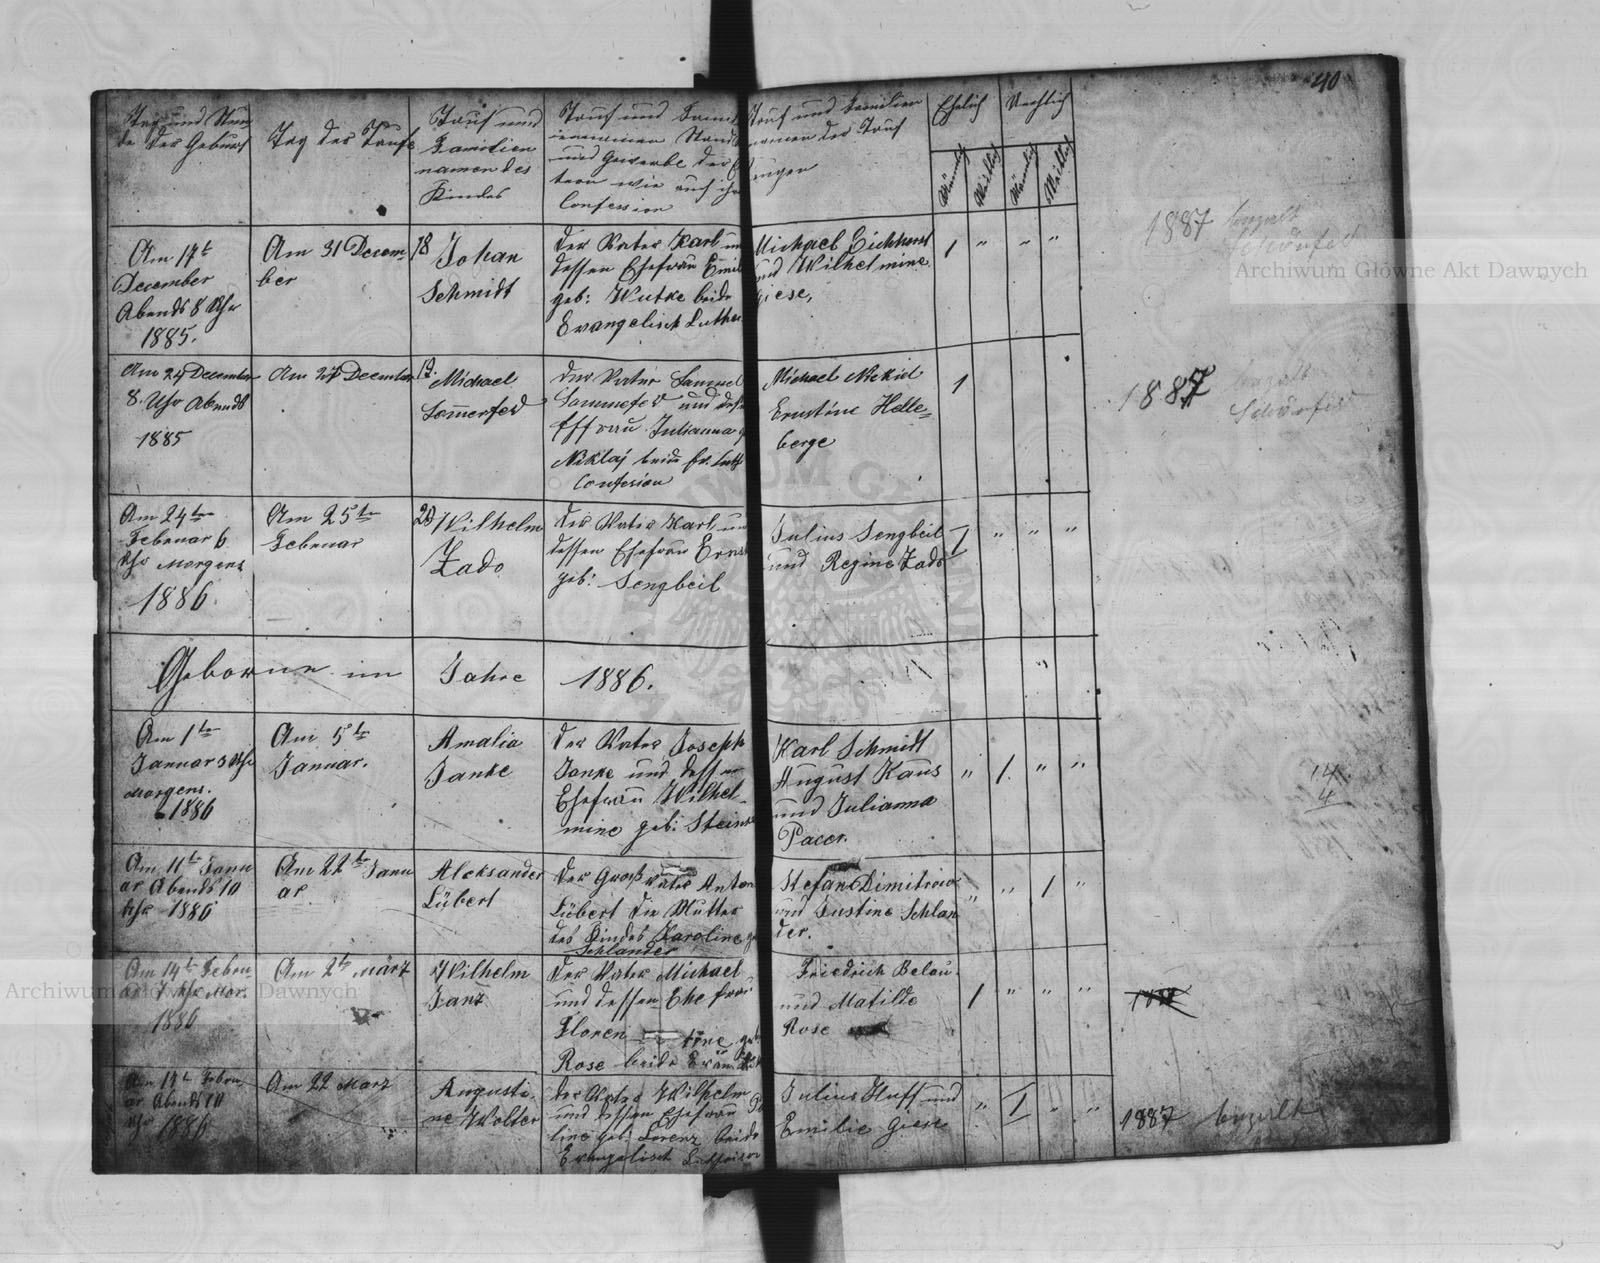 40
Tag und Stun
de der Geburt
Tag der Taufe
Tauf und
Familien
namen des
Kindes
Tauf und
Stand
und Gewerbe der
tern wie auch ihr
Confession
Tauf und Familien
namen der Tauf
zeugen
Ehelich
Unehlich
Männlich
Weiblich
Männlich
Weiblich
Am 17t
December
Abends 8 Uhr
1885.
Am 31 Decem-
ber
18 Johan
Schmidt
der Vater Karl und
dessen Ehefrau Emil
geb: Wutke beide
Evangelisch Luther
Michael Eichhorst
und Wilhelmine
Giese,
1 " " "
1887 bezalt
Archiwum Główne Akt Dawnych
Am 24 December
8. Uhr Abends
1885
Am 27 December
19. Michael
Somerfeld
der Vater Samuel
Sommefeld und dess
Effrau Julianna g
Niklaj beide Ev. Luth
Confesion
Michael Nickiel
Ernstine Helle=
berge
1
1887 bezalt
Am 24ten
Februar 6
Uhr Morgens
1886.
Am 25ten
Februar
20 Wilhelm
Zado
der Vater Karl und
dessen Ehefrau Ernst
geb: Sengbeil
Julius Sengbeil
und Regine Zado
1 " " "
Geborne im Jahre 1886.
Am 1ten
Januar 3 Uhr
Morgens.
1886
Am 5ten
Januar.
Amalia
Janke
der Vater Joseph
Janke und dessen
Ehefrau Wilhel-
mine geb: Stein
Karl Schmidt
August Kaus
und Julianna
Pacer.
" 1. " "
14
4
Am 11t Janu
ar Abends 10
Uhr 1886
Am 22t Janu
ar
Aleksander
Lübert
Der Groß Vater Anton
Lübert die Mutter
des Kindes Karoline g
Schlander
Stefan Dimitrow
und Justine Schlan
der.
" " 1 "
Am 14t Febru
ar 7 Uhr Mor.
1886
Am 2t März
Wilhelm
Janz
Der Vater Michael
und dessen Ehe frau
Floren tine geb
Rose beide
Friedrich Belau
und Matilde
Rose
1 " " "
Archiwum Główne Akt Dawnych
Am 17t Febru
ar Abends 10
Uhr 1886
Am 22 März
Augusti-
ne Wolter
der Vater Wilhelm
und dessen Ehefrau
line geb: Lorenz beide
Evangelisch
Julius Huff und
Emilie Giese
" 1 " "
1887 bezalt